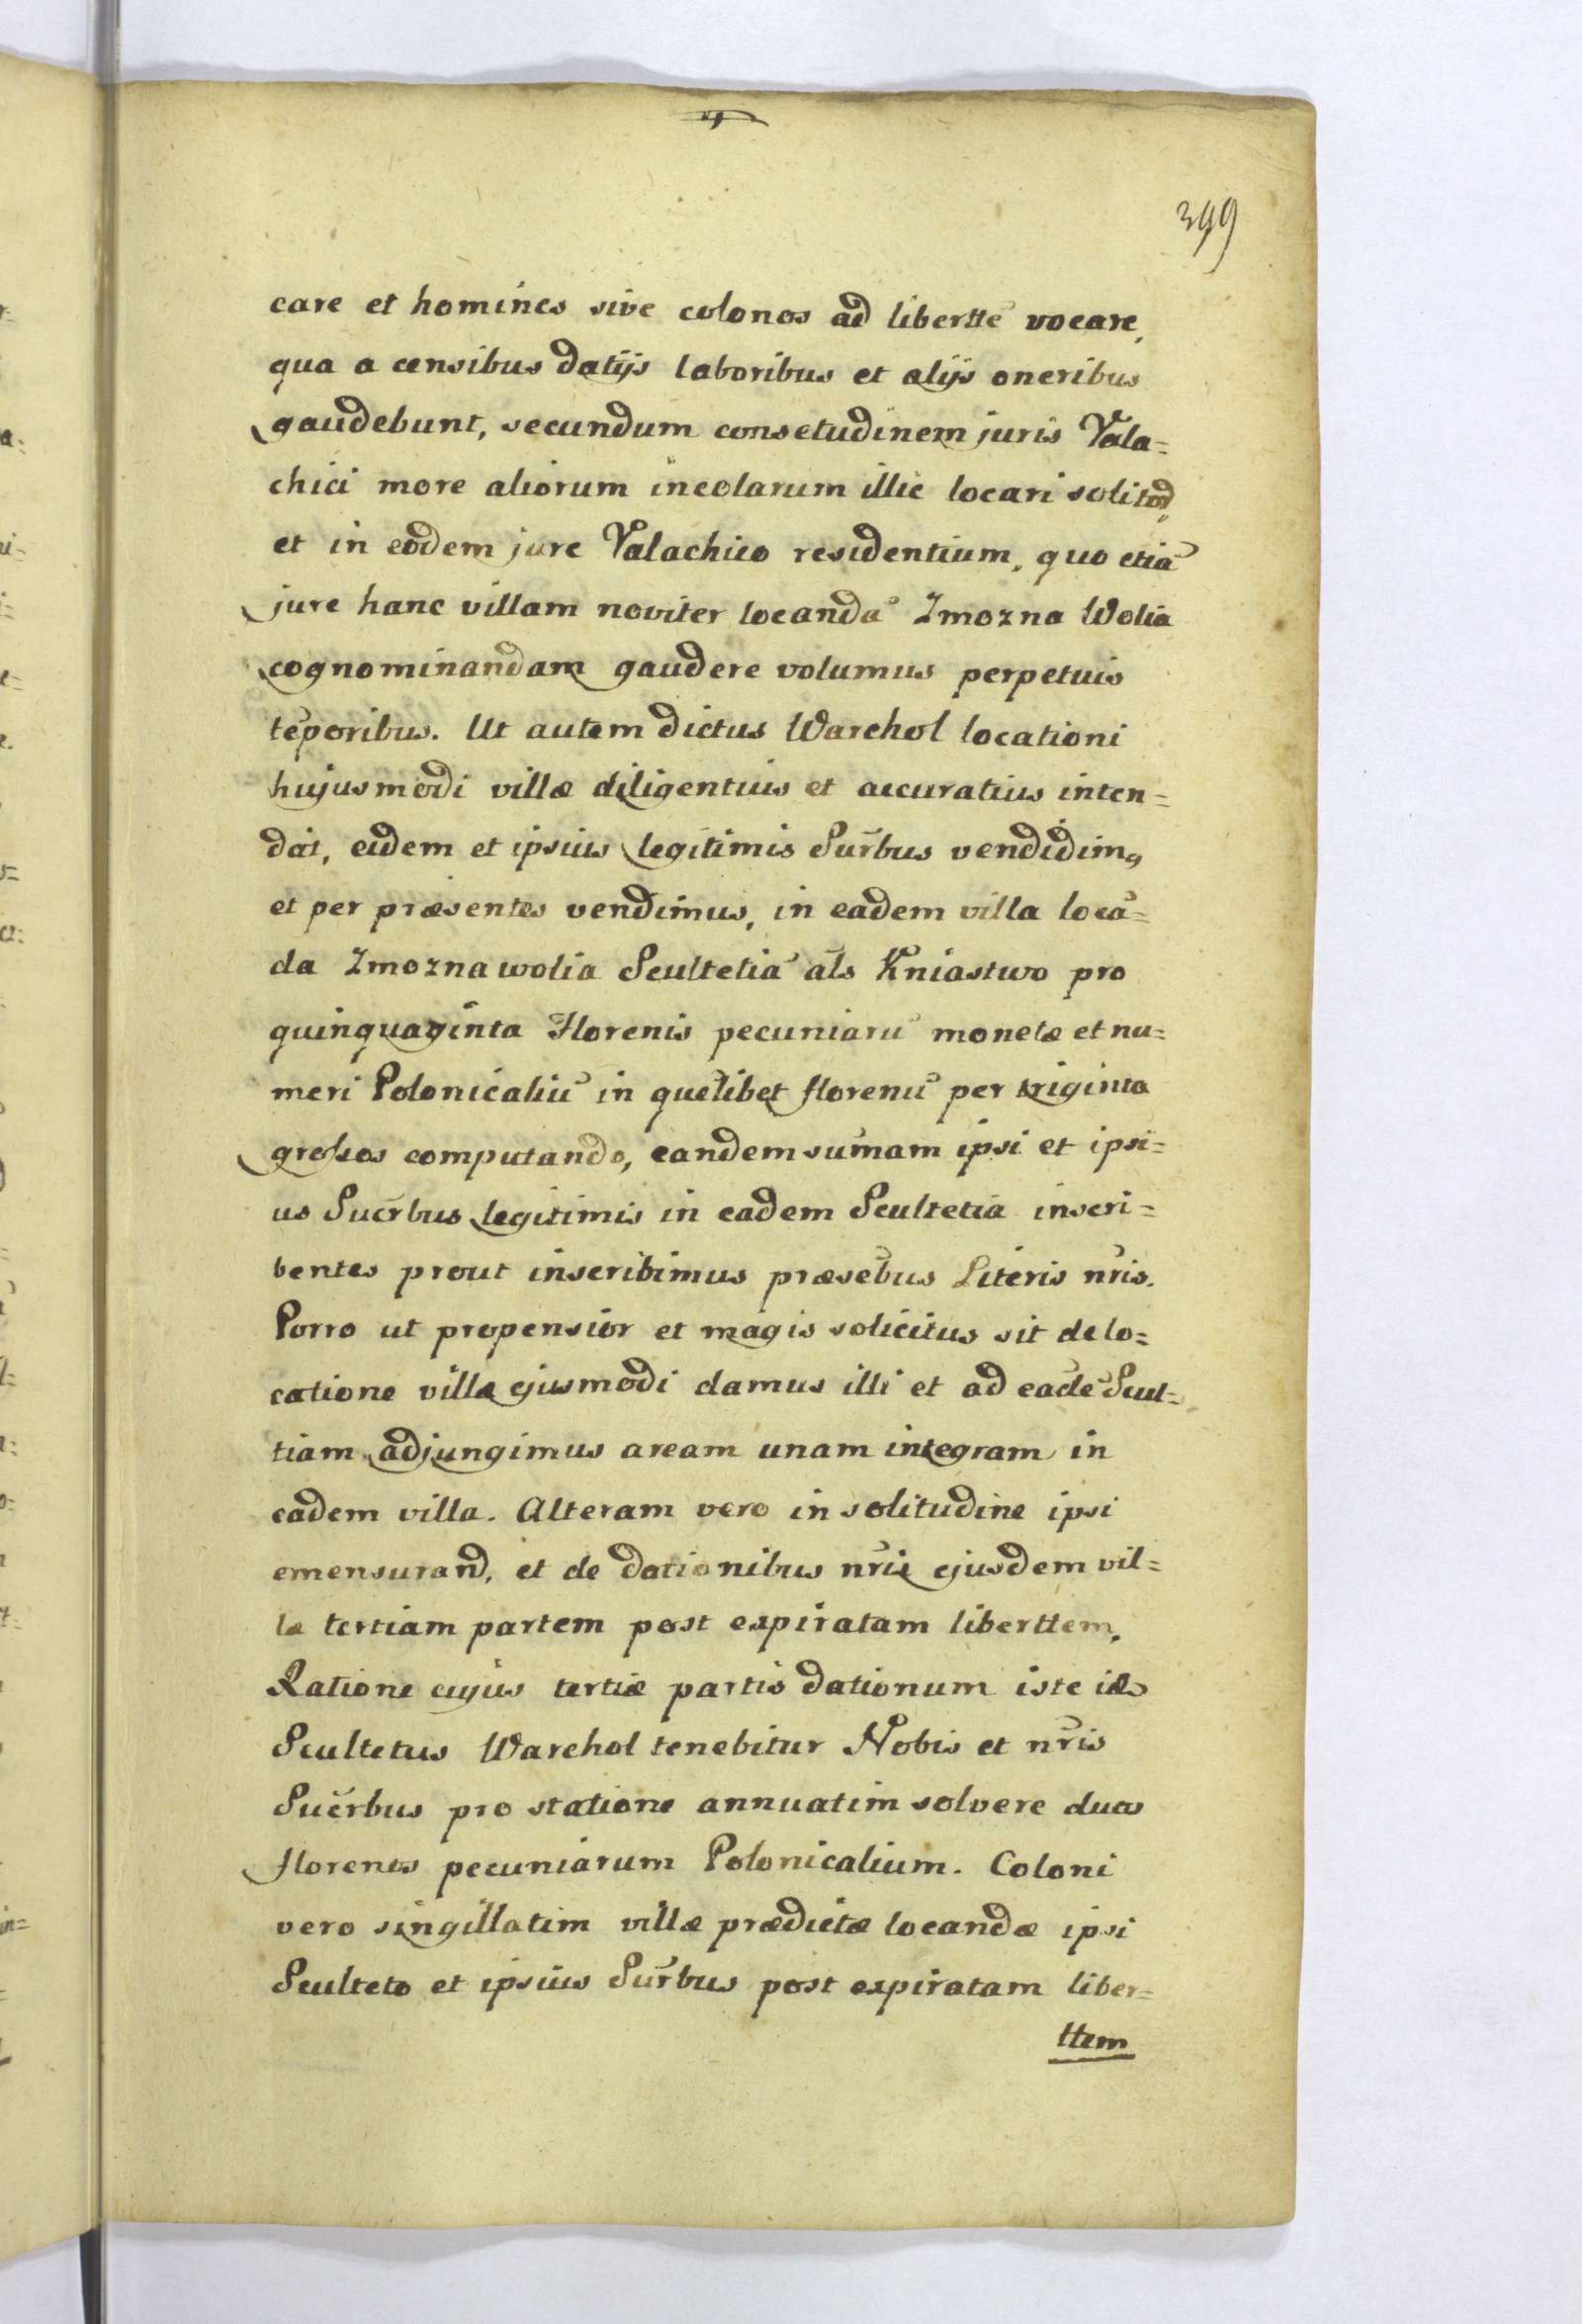 399
care et homines sive colonos ad libertte͂ vocare,
qua a censibus datijs laboribus et alijs oneribus
gaudebunt, secundum consetudinem juris Vala=
chici more aliorum incolarum illic locari
et in eodem jure Valachico residentium, quo etia͂
jure hanc villam noviter locanda͂ Zmozna Wolia
cognominandam gaudere volumus perpetuis
te͂poribus. Ut autem dictus Warchol locationi
hujusmodi villæ diligentius et accuratius inten=
dat, eidem et ipsius legitimis Sur͂bus vendidim9
et per præsentes vendimus, in eadem villa loca͂=
da Zmoznawolia Scultetia͂ al͂s Kniastwo pro
quinquaginta Florenis pecuniaru͂ monetæ et nu=
meri Polonicaliu͂ in que͂libet florenu͂ per triginta
grossos computando, eandem sum͂am ipsi et ipsi=
us Sucr͂bus legitimis in eadem Scultetia inscri=
bentes prout inscribimus præse͂bus Literis nr͂is.
Porro ut propensior et magis solicitus sit de lo=
catione villæ ejusmodi damus illi et ad eade͂ Scul=
tiam adjungimus aream unam integram in
eadem villa. Alteram vero in solitudine ipsi
emensurand, et de dationibus nr͂is ejusdem vil=
læ tertiam partem post expiratam liberttem,
Ratione cujus tertiæ partis dationum iste
Scultetus Warchol tenebitur Nobis et nr͂is
Sucr͂bus pro statione annuatim solvere duos
florenos pecuniarum Polonicalium. Coloni
vero singillatim villæ prædictæ locandæ ipsi
Sculteto et ipsius Sur͂bus post expiratam liber=
ttem